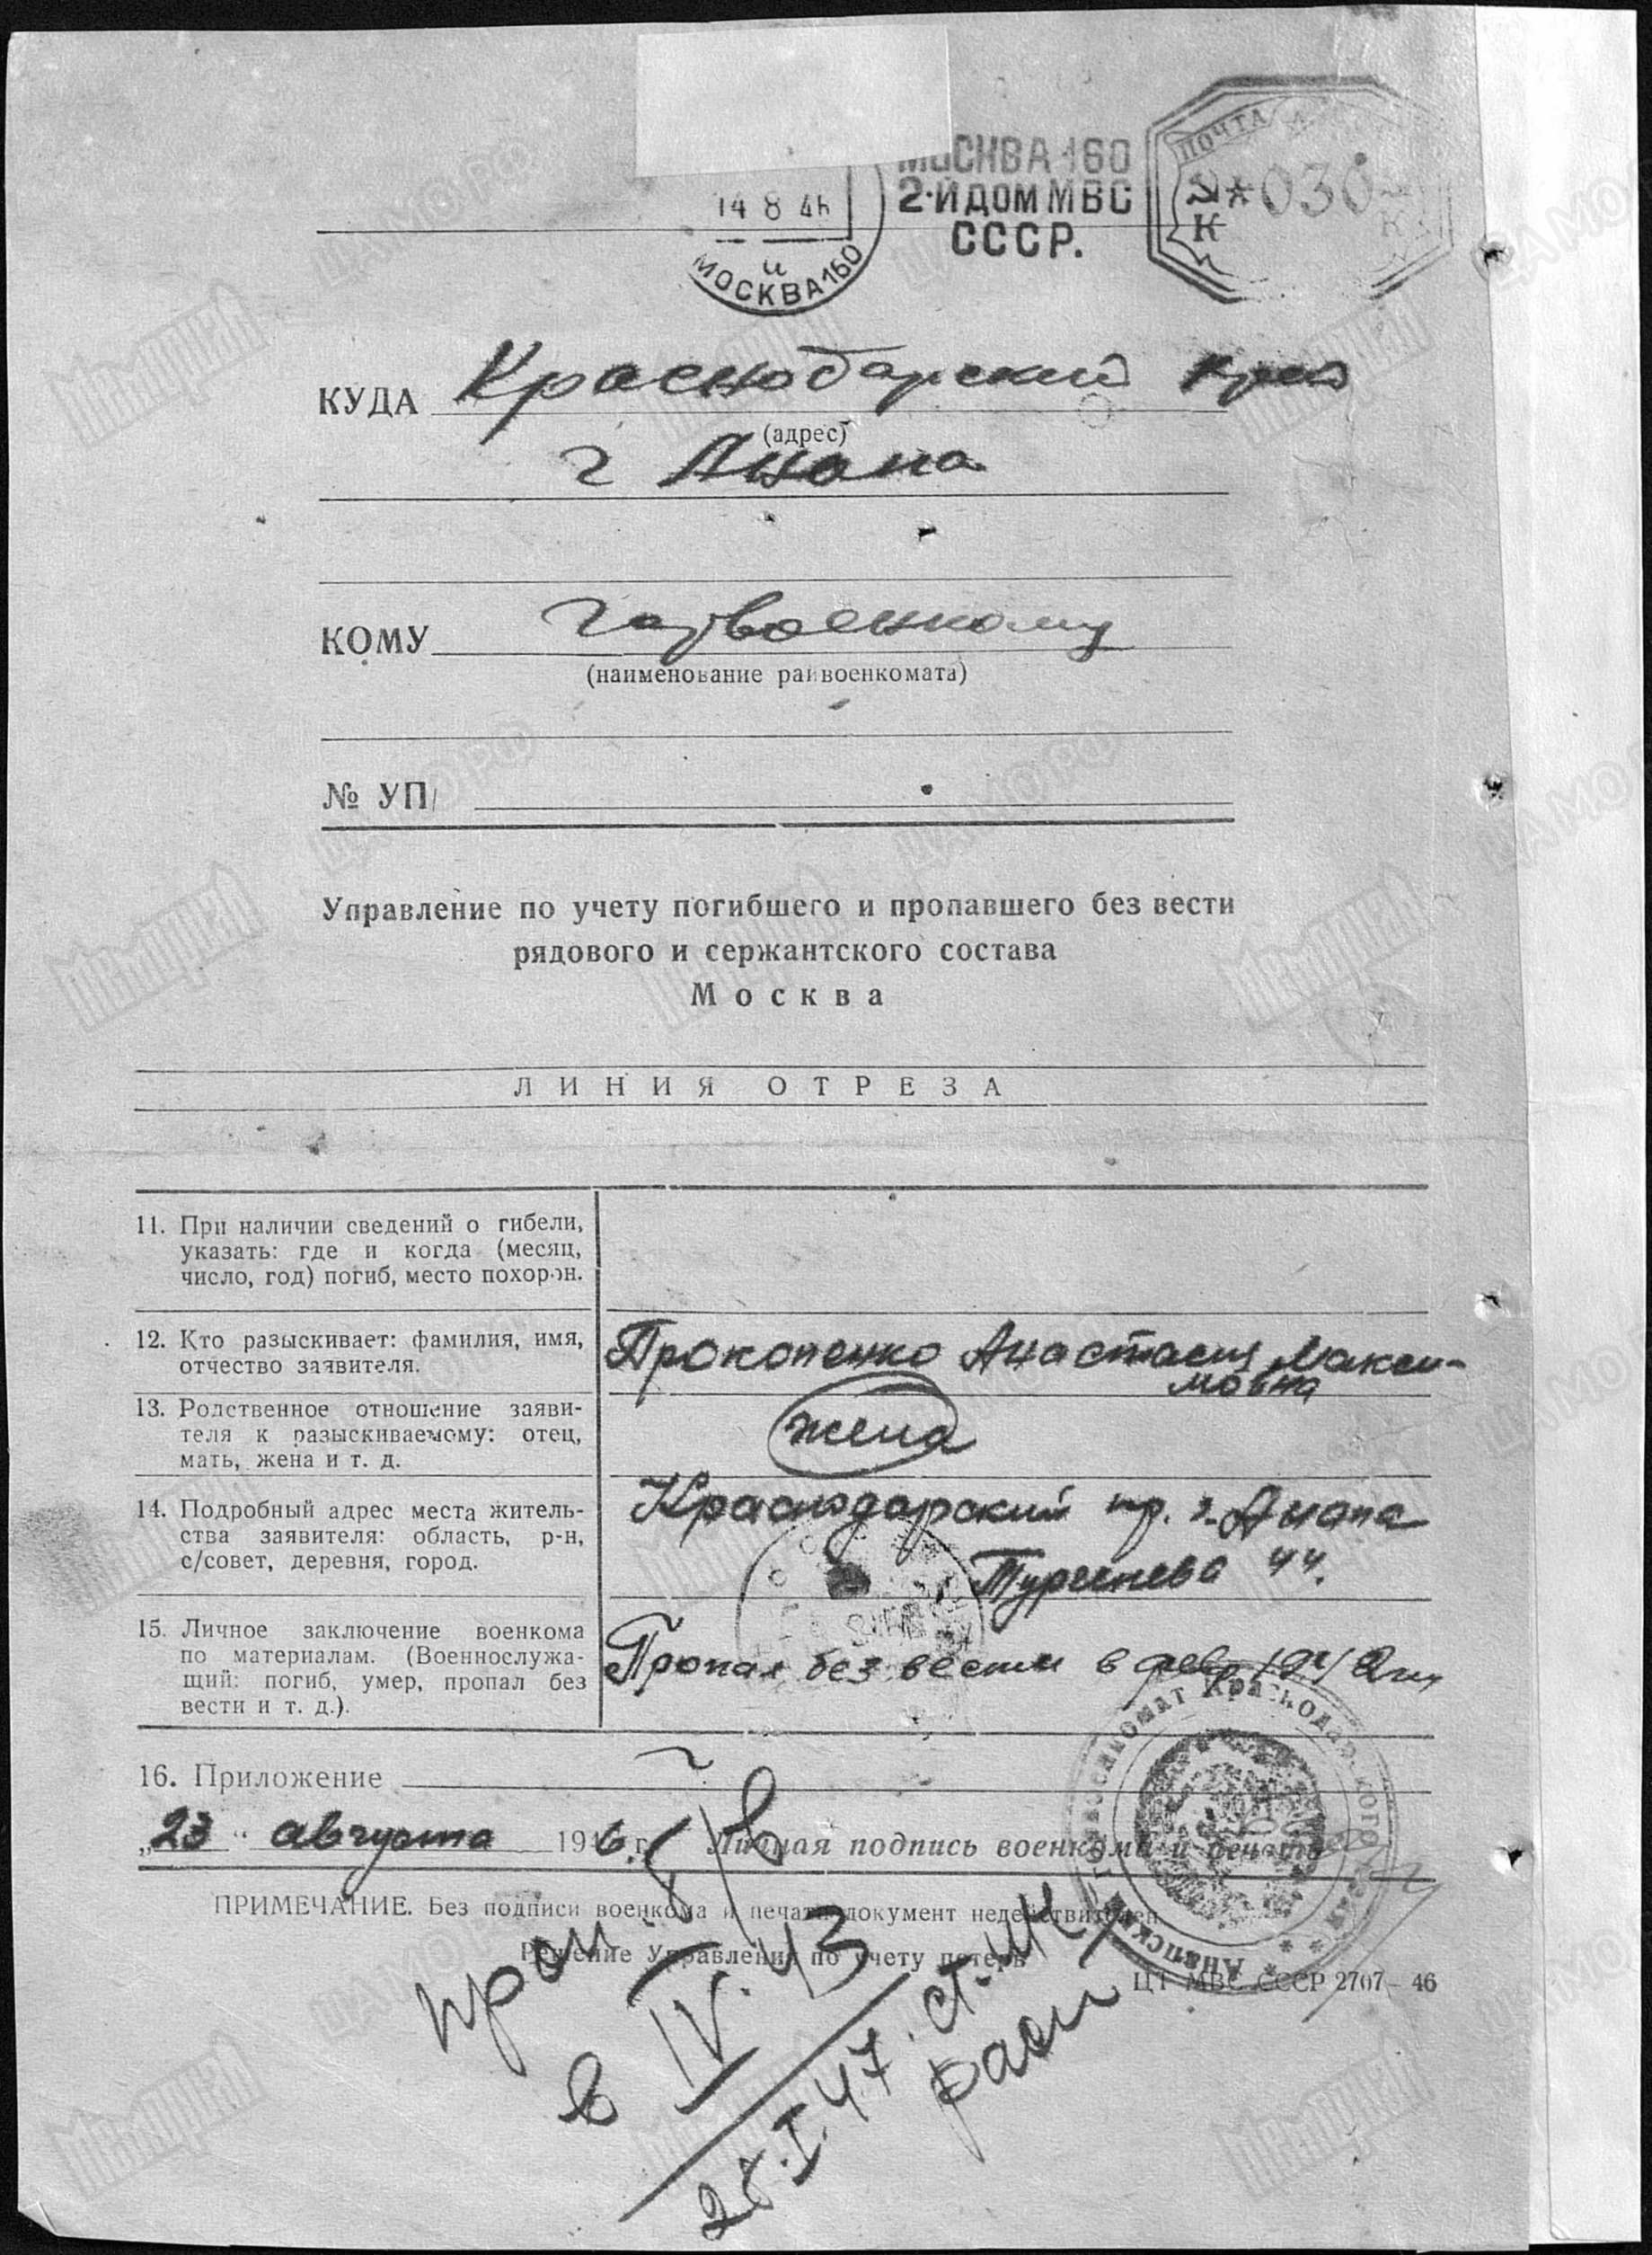 МОСКВА 160
2-Й ДОМ МВС
СССР.
14 8 46
МОСКВА 160
ПОЧТА
030
К К
КУДА Краснодарский край
(адрес)
г Анапа
КОМУ горвоенкому
(наименование райвоенкомата)
№ УП/
Управление по учету погибшего и пропавшего без вести
рядового и сержантского состава
Москва
ЛИНИЯ ОТРЕЗА
11. При наличии сведений о гибели,
указать: где и когда (месяц,
число, год) погиб, место похорон.
12. Кто разыскивает: фамилия, имя,
отчество заявителя.
Прокопенко Анастасия Макси-
мовна
13. Родственное отношение заяви-
теля к разыскиваемому: отец,
мать, жена и т. д.
жена
14. Подробный адрес места житель-
ства заявителя: область, р-н,
с/совет, деревня, город.
Краснодарский кр. г. Анапа
Тургенева 44.
15. Личное заключение военкома
по материалам. (Военнослужа-
щий: погиб, умер, пропал без
вести и т. д.).
Пропал без вести в февр 1942
16. Приложение
„23“ августа 1946 г. Личная подпись военкома и печать
ПРИМЕЧАНИЕ. Без подписи военкома и печати документ недействителен
Решение Управления по учету потерь
ЦТ МВС СССР 2707–46
Анапский Горвоенкомат Краснодарского края
проп б/в
в IV.43
28.I.47. ст.
ЦАМО РФ
Мемориал